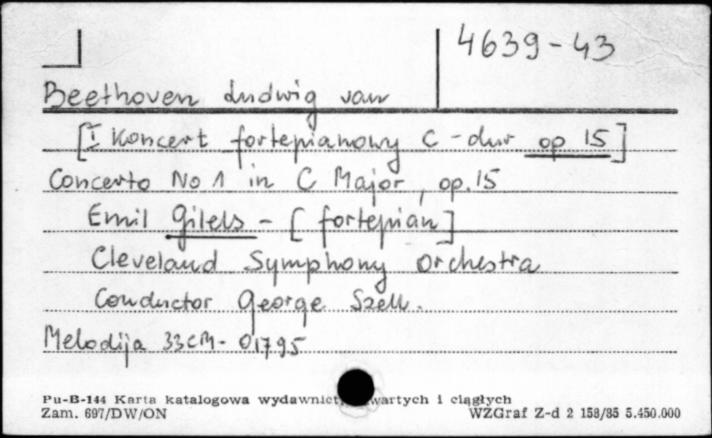 4639-43
Beethoven Ludwig van
[I Koncert fortepianowy C-dur op 15]
Concerto No 1 in C Major, op. 15
Emil Gilels - [fortepian]
Cleveland Symphony Orchestra
Conductor George Szell.
Melodija 33CM- 01795
Pu-B-144 Karta katalogowa wydawnict zwartych i ciągłych
Zam. 697/DW/ON WZGraf Z-d 2 158/85 5.450.000